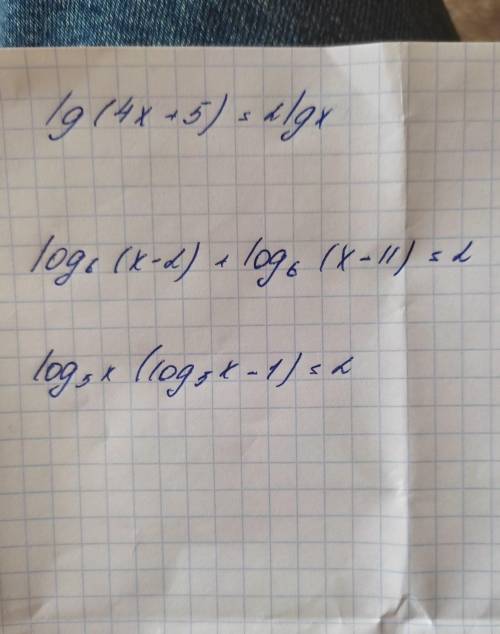 lg(4x+5)=2lgx
log₆(x-2)+log₆(x-11)=2
log₅x(log₅x-1)=2